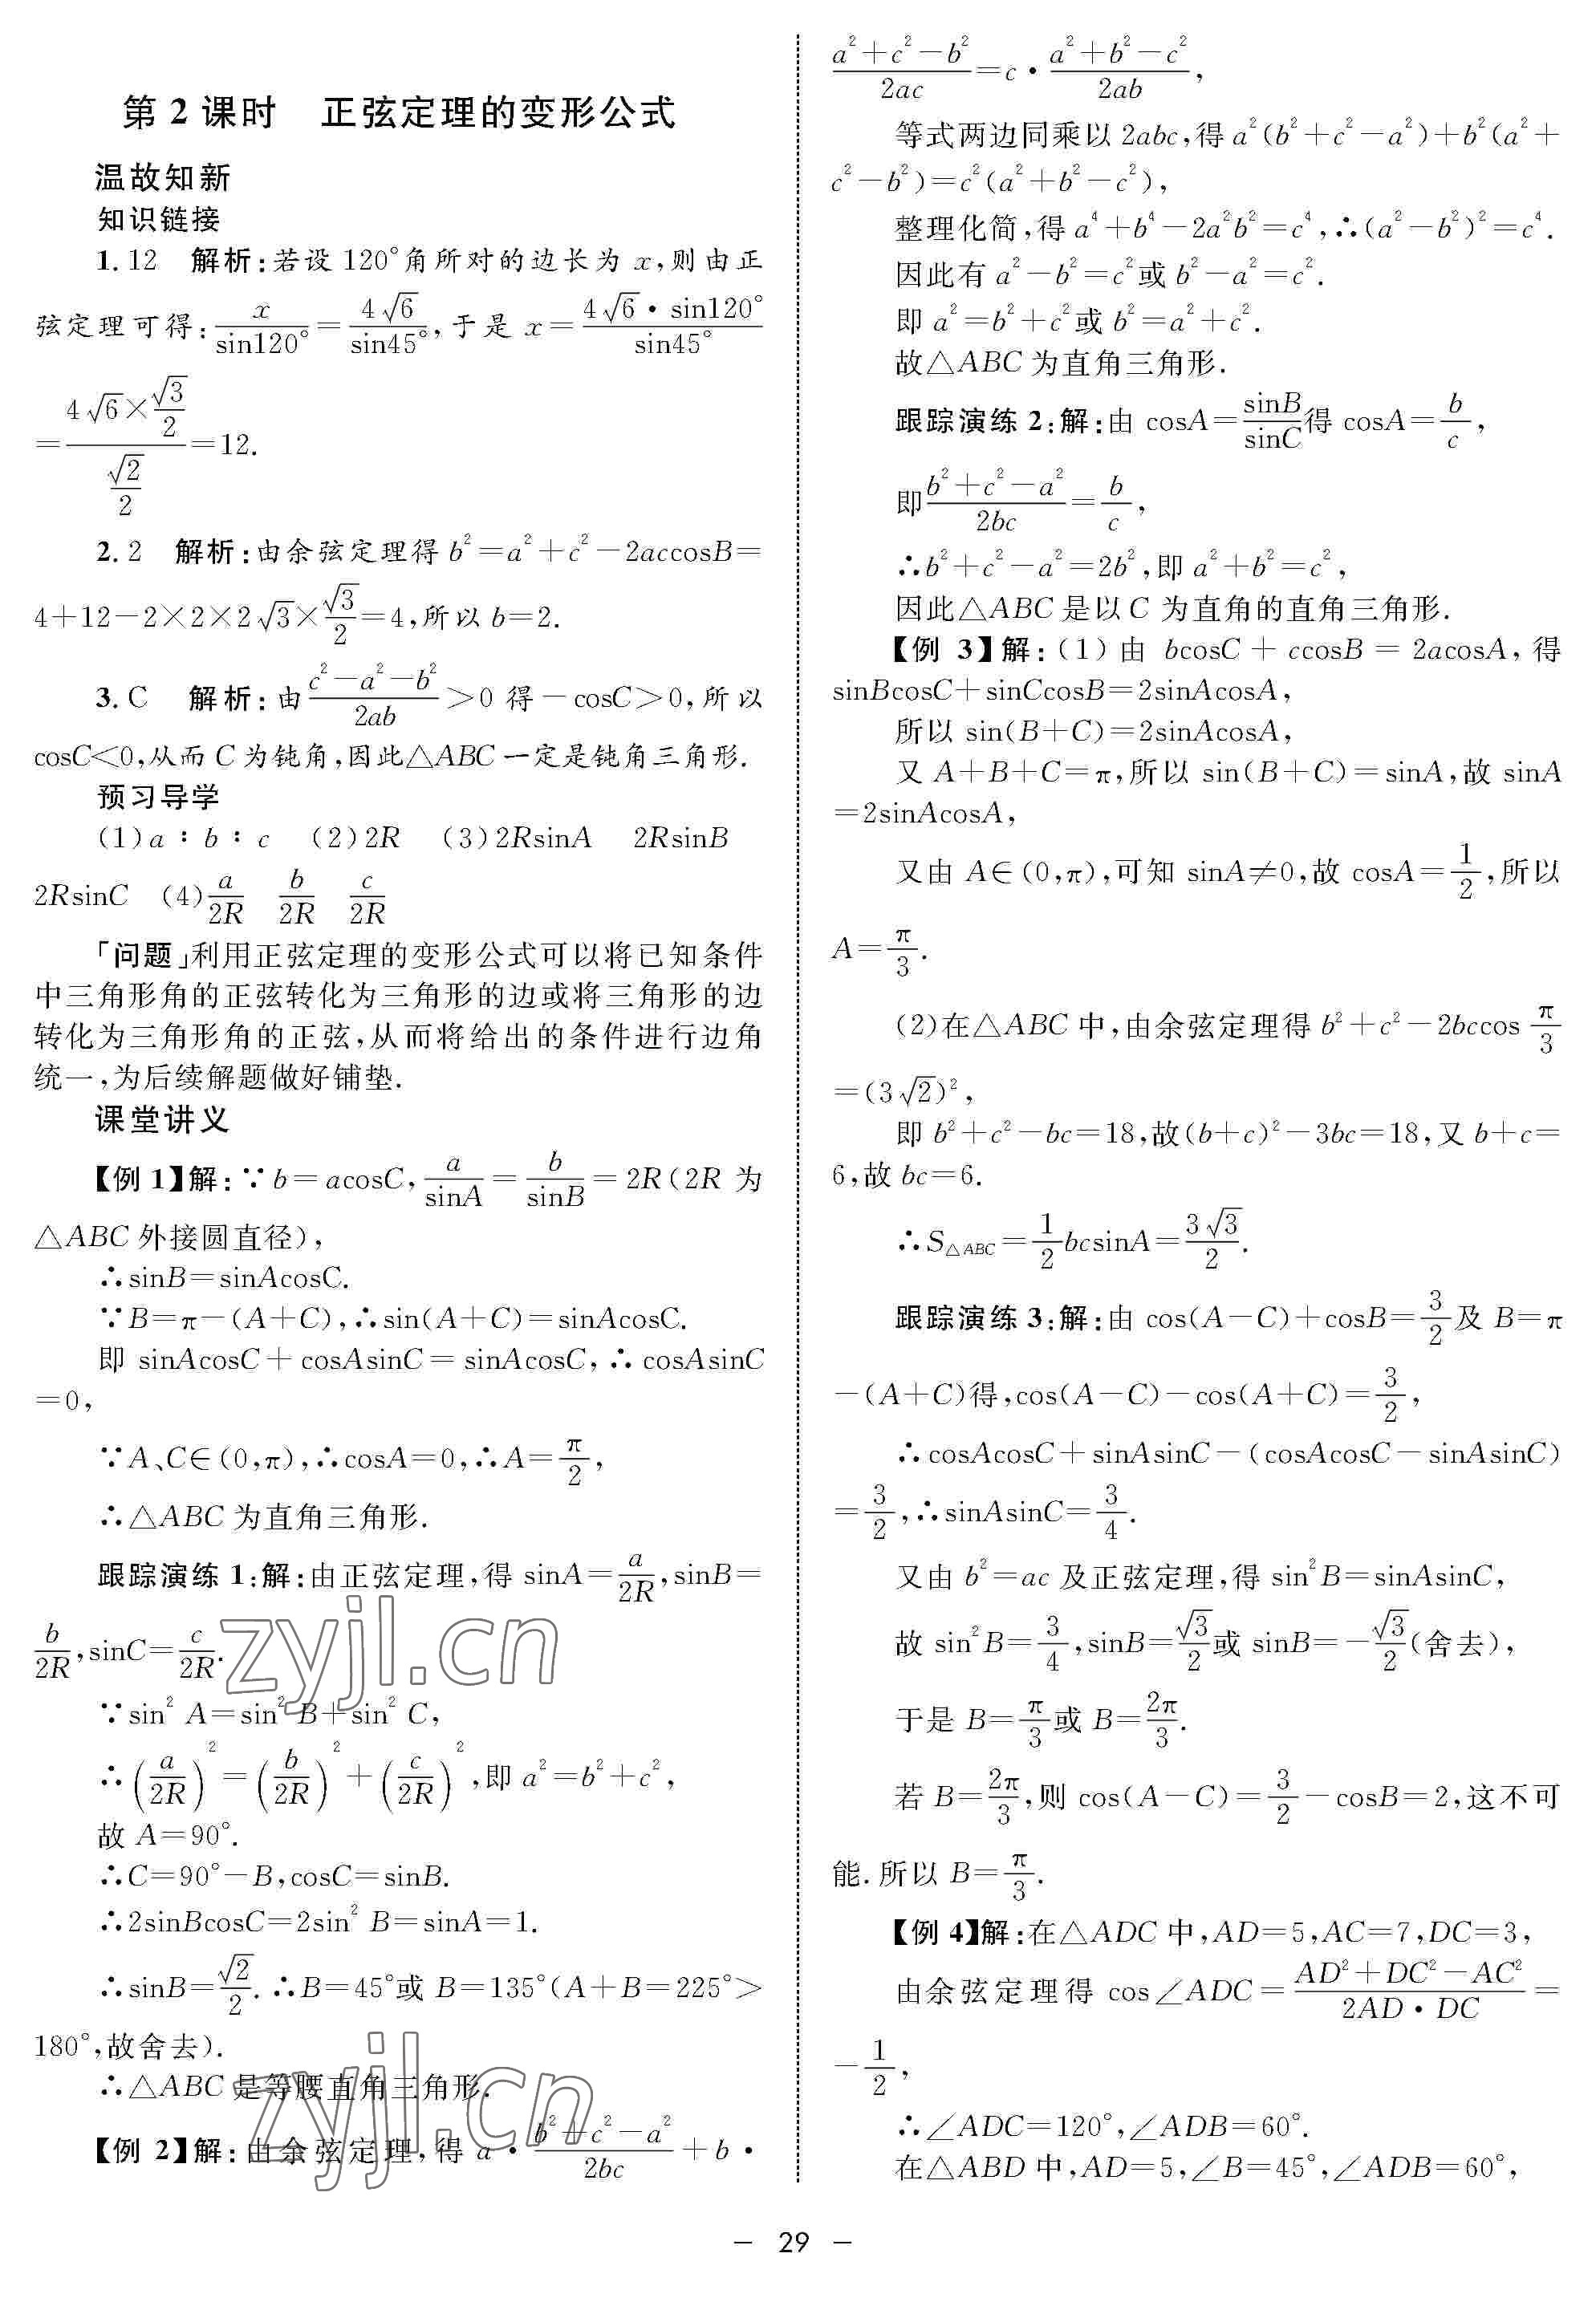 第 2 课时　正弦定理的变形公式
温故知新
知识链接
1. 12　解析:若设 120°角所对的边长为 x,则由正
弦定理可得: x/sin120° = 4√6/sin45°, 于是 x = (4√6·sin120°)/sin45°
= (4√6×√3/2)/(√2/2) = 12.
2. 2　解析:由余弦定理得 b²=a²+c²-2accosB=
4+12-2×2×2√3×√3/2=4,所以 b=2.
3. C　解析:由 (c²-a²-b²)/2ab >0 得-cosC>0,所以
cosC<0,从而 C 为钝角,因此△ABC 一定是钝角三角形.
预习导学
(1)a∶b∶c　(2)2R　(3)2RsinA　2RsinB
2RsinC　(4) a/2R　b/2R　c/2R
「问题」利用正弦定理的变形公式可以将已知条件
中三角形角的正弦转化为三角形的边或将三角形的边
转化为三角形角的正弦,从而将给出的条件进行边角
统一,为后续解题做好铺垫.
课堂讲义
【例 1】解:∵b=acosC, a/sinA = b/sinB = 2R(2R 为
△ABC 外接圆直径),
∴sinB=sinAcosC.
∵B=π-(A+C),∴sin(A+C)=sinAcosC.
即 sinAcosC+cosAsinC=sinAcosC,∴cosAsinC
=0,
∵A、C∈(0,π),∴cosA=0,∴A=π/2,
∴△ABC 为直角三角形.
跟踪演练 1:解:由正弦定理,得 sinA=a/2R,sinB=
b/2R,sinC=c/2R.
∵sin² A=sin² B+sin² C,
∴(a/2R)²=(b/2R)²+(c/2R)²,即 a²=b²+c²,
故 A=90°.
∴C=90°-B,cosC=sinB.
∴2sinBcosC=2sin² B=sinA=1.
∴sinB=√2/2.∴B=45°或 B=135°(A+B=225°>
180°,故舍去).
∴△ABC 是等腰直角三角形.
【例 2】解:由余弦定理,得 a·(b²+c²-a²)/2bc+b·
(a²+c²-b²)/2ac=c·(a²+b²-c²)/2ab,
等式两边同乘以 2abc,得 a²(b²+c²-a²)+b²(a²+
c²-b²)=c²(a²+b²-c²),
整理化简,得 a⁴+b⁴-2a²b²=c⁴,∴(a²-b²)²=c⁴.
因此有 a²-b²=c²或 b²-a²=c².
即 a²=b²+c²或 b²=a²+c².
故△ABC 为直角三角形.
跟踪演练 2:解:由 cosA=sinB/sinC得 cosA=b/c,
即(b²+c²-a²)/2bc=b/c,
∴b²+c²-a²=2b²,即 a²+b²=c²,
因此△ABC 是以 C 为直角的直角三角形.
【例 3】解:(1)由 bcosC+ccosB=2acosA,得
sinBcosC+sinCcosB=2sinAcosA,
所以 sin(B+C)=2sinAcosA,
又 A+B+C=π,所以 sin(B+C)=sinA,故 sinA
=2sinAcosA,
又由 A∈(0,π),可知 sinA≠0,故 cosA=1/2,所以
A=π/3.
(2)在△ABC 中,由余弦定理得 b²+c²-2bccos π/3
=(3√2)²,
即 b²+c²-bc=18,故(b+c)²-3bc=18,又 b+c=
6,故 bc=6.
∴S△ABC=1/2bcsinA=3√3/2.
跟踪演练 3:解:由 cos(A-C)+cosB=3/2及 B=π
-(A+C)得,cos(A-C)-cos(A+C)=3/2,
∴cosAcosC+sinAsinC-(cosAcosC-sinAsinC)
=3/2,∴sinAsinC=3/4.
又由 b²=ac 及正弦定理,得 sin²B=sinAsinC,
故 sin²B=3/4,sinB=√3/2或 sinB=-√3/2(舍去),
于是 B=π/3或 B=2π/3.
若 B=2π/3,则 cos(A-C)=3/2-cosB=2,这不可
能.所以 B=π/3.
【例 4】解:在△ADC 中,AD=5,AC=7,DC=3,
由余弦定理得 cos∠ADC=(AD²+DC²-AC²)/(2AD·DC)=
-1/2,
∴∠ADC=120°,∠ADB=60°.
在△ABD 中,AD=5,∠B=45°,∠ADB=60°,
zyjl.cn
zyjl.cn
- 29 -